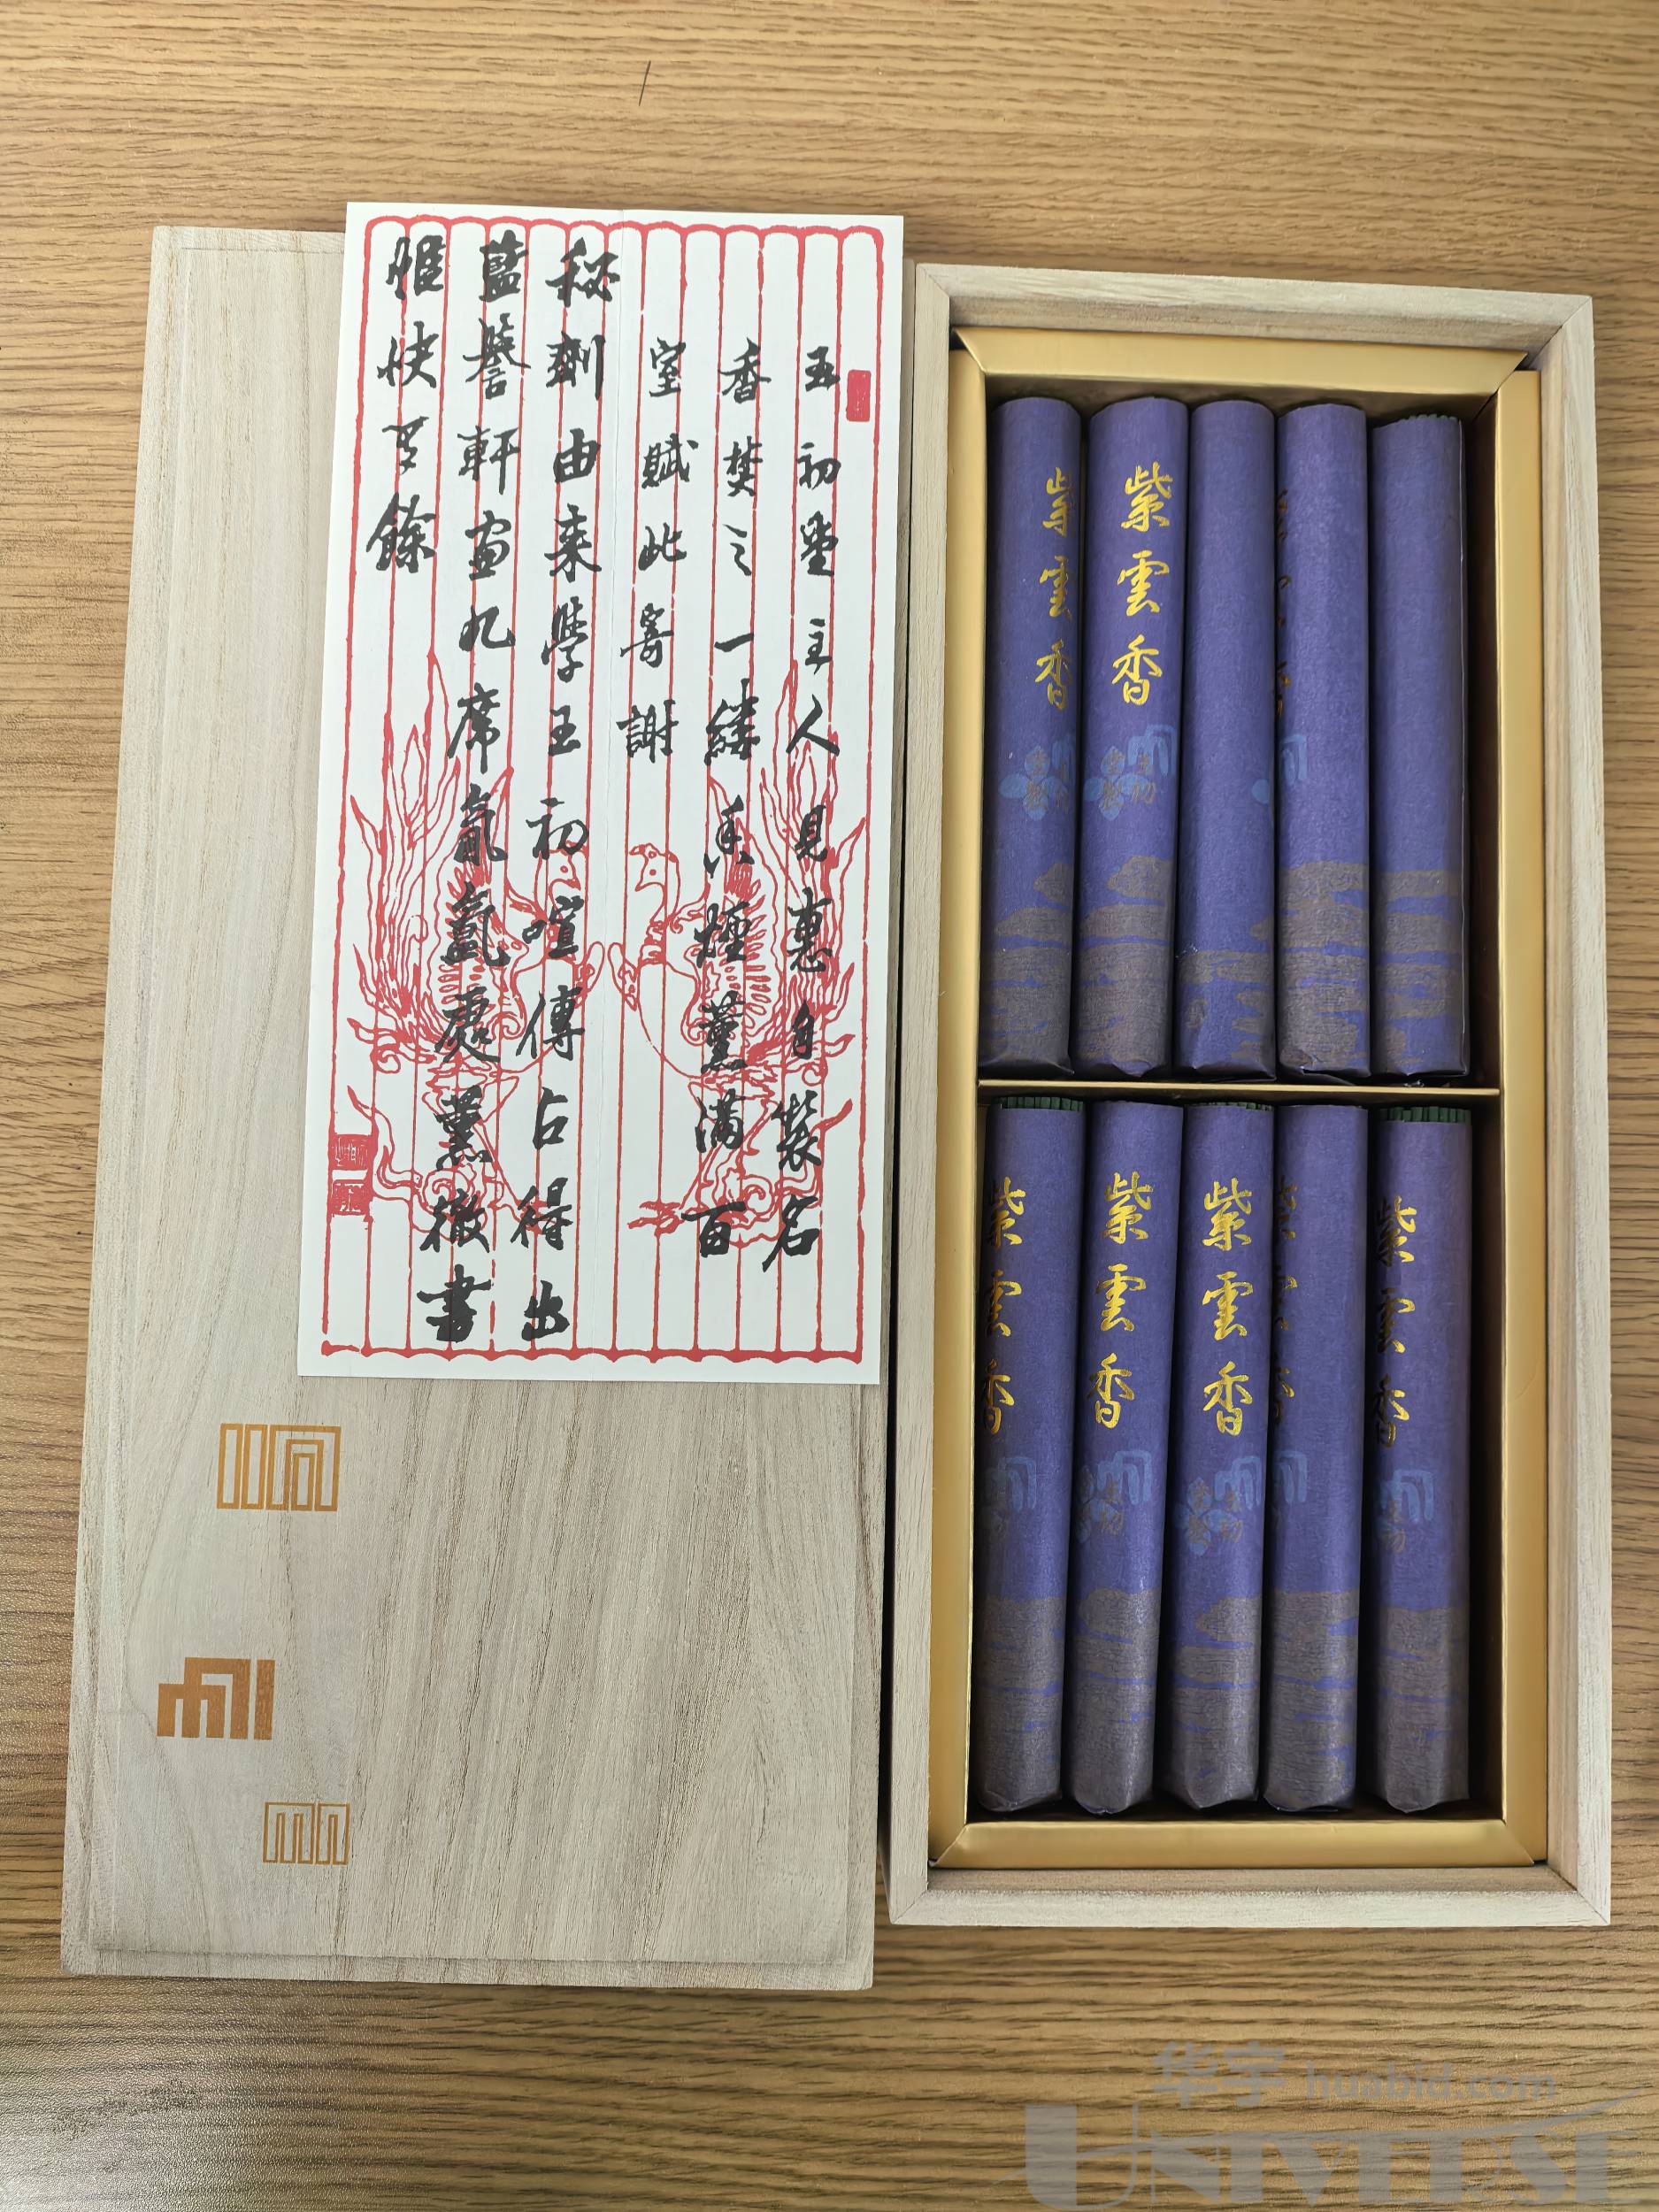 玉初堂主人見惠自製名
香焚之一縷煙薰滿百
室賦此寄謝
秘劑由来學玉初喧傳占得出
藍譽軒窗几席氤氳處薰徹書
帷快餘
紫雲香
紫雲香
紫雲香
紫雲香
紫雲香
紫雲香
华宇 huabid.com
UNIVERSE